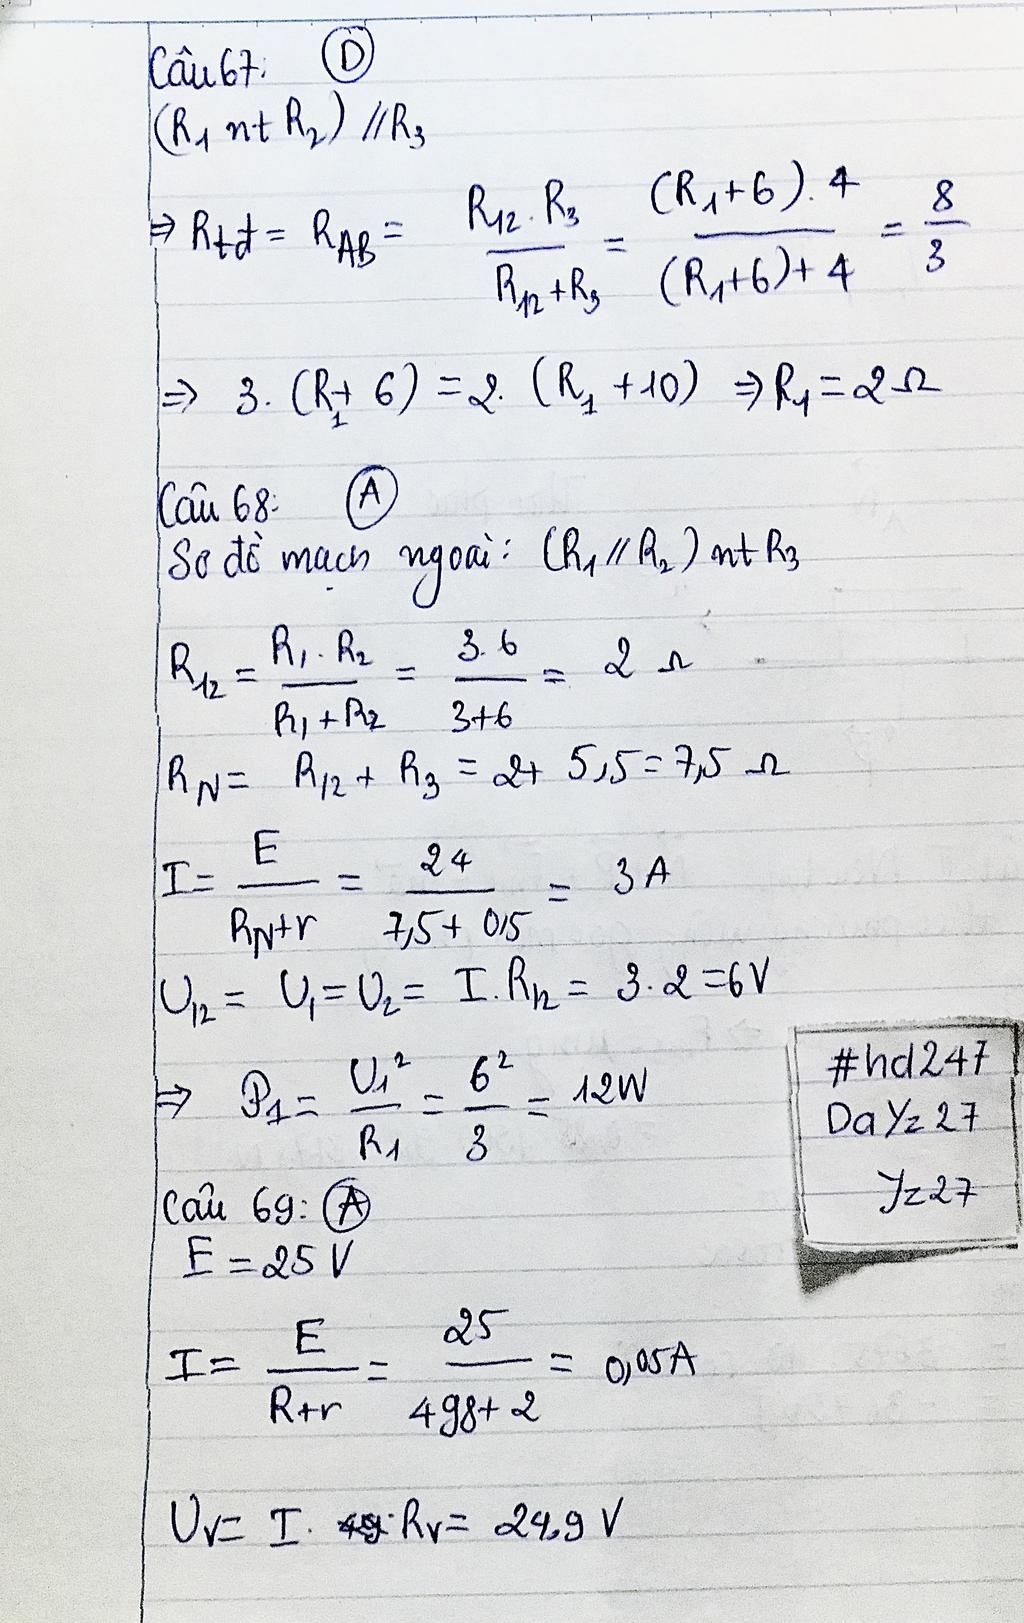 Câu 67: D
(R₁ nt R₂) // R₃
⇒ Rtđ = R_AB = R₁₂ . R₃ / R₁₂ + R₃ = (R₁ + 6) . 4 / (R₁ + 6) + 4 = 8 / 3
⇒ 3 . (R₁ + 6) = 2 . (R₁ + 10) ⇒ R₁ = 2 Ω
Câu 68: A
Sơ đồ mạch ngoài: (R₁ // R₂) nt R₃
R₁₂ = R₁ . R₂ / R₁ + R₂ = 3 . 6 / 3 + 6 = 2 Ω
R_N = R₁₂ + R₃ = 2 + 5,5 = 7,5 Ω
I = E / R_N + r = 24 / 7,5 + 0,5 = 3 A
U₁₂ = U₁ = U₂ = I . R₁₂ = 3 . 2 = 6 V
⇒ P₁ = U₁² / R₁ = 6² / 3 = 12 W
#hd247
DaYz27
Yz27
Câu 69: A
E = 25 V
I = E / R + r = 25 / 498 + 2 = 0,05 A
U_V = I . R_V = 24,9 V